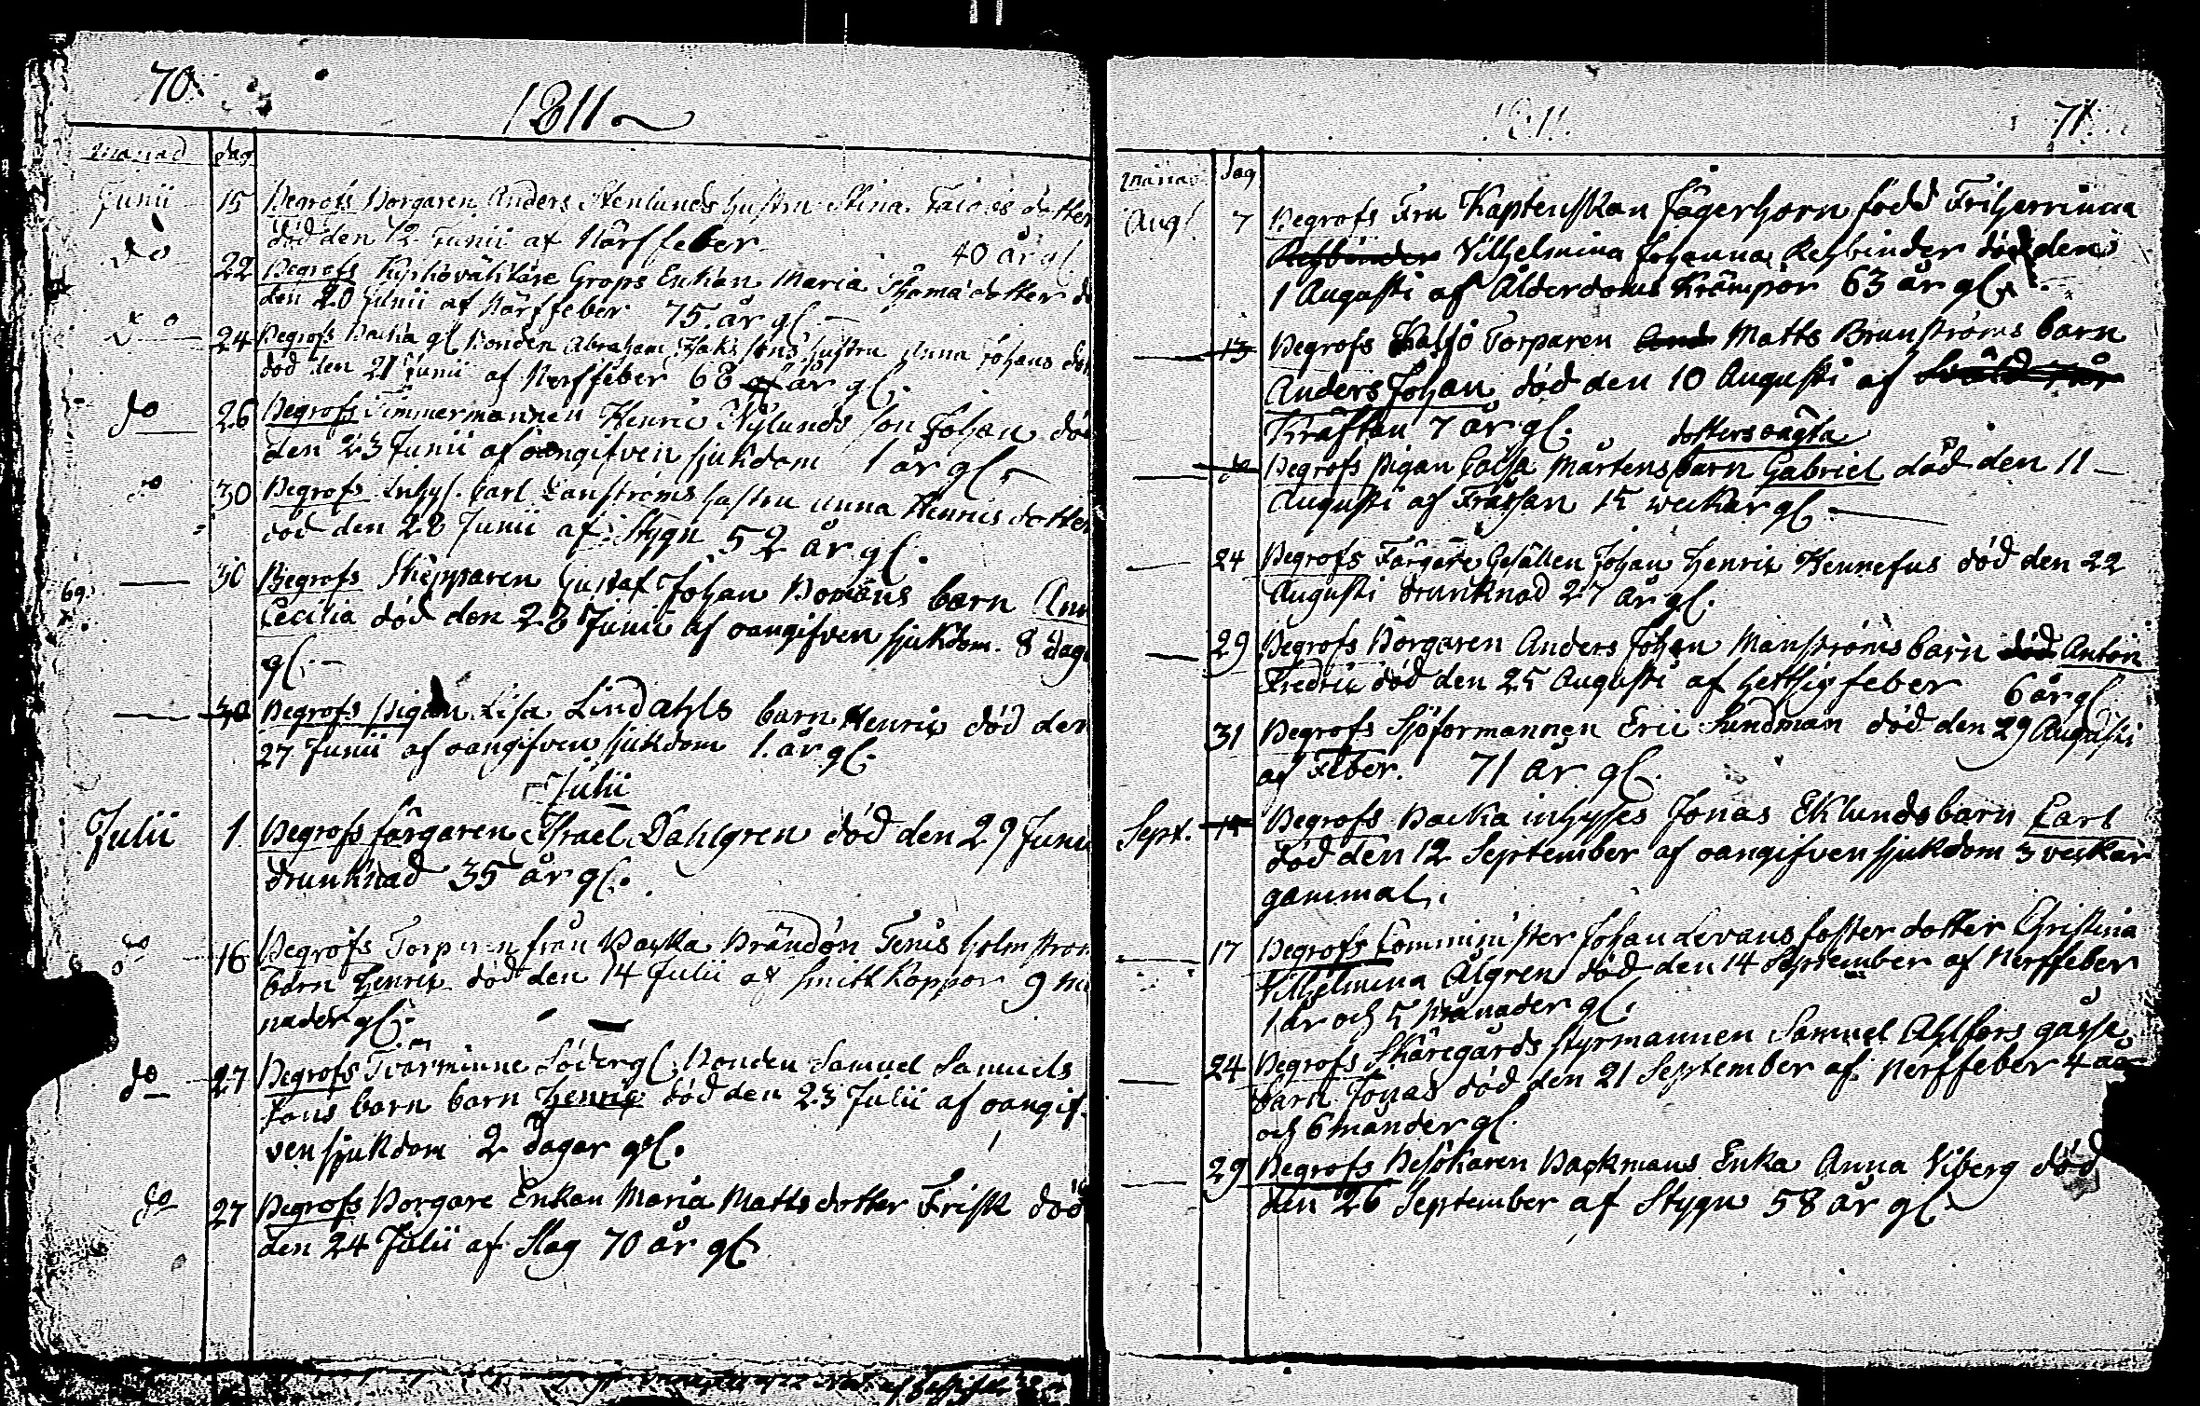 70.
1811
Månad dag
Junii 15 Begrofs Borgaren Anders Stenlunds hustru Stina Jacobs dotter
död den 12 Junii af Närffeber 40 år gl.
do 22 Begrofs Enkan Maria Thomas dotter
den 20 Junii af Närffeber 75 år gl.
do 24 Begrofs Backa gl. Bonden Abraham Isaks sons hustru Anna Johans
död den 21 Junii af Nerffeber 68 år gl.
do 26 Begrofs Timmermannen Henric Nylunds son Johan död
den 23 Junii af oangifven sjukdom 1 år gl.
do 30 Begrofs Inhys. Carl Lanströms hustru Anna Henrics dotter
död den 28 Junii af Stygn 52 år gl.
30 Begrofs Skepparen Gustaf Johan Bomans barn Ann
69.
Cecilia död den 28 Junii af oangifven sjukdom. 8 dag
gl.
30 Begrofs pigan Lisa Lindahls barn Henric död den
27 Junii af oangifven sjukdom 1. år gl.
Julii
Julii 1. Begrofs färgaren Israel Dahlgren död den 29 Juni
drunknad 35 år gl.
do 16 Begrofs Torparen från Backa Brändön Holmström
barn Henric död den 14 Julii af smittkoppor 9 må
nader gl.
do 27 Begrofs Tvärminne Söderg. Bonden Samuel Samuels
sons barn barn Henric död den 23 Julii af oangif-
ven sjukdom 2 dagar gl.
do 27 Begrofs Borgare Enkan Maria Matts dotter Frisk död
den 24 Julii af Slag 70 år gl.
1811.
71.
Månad dag
Aug. 7 Begrofs Fru Kaptenskan Jägerhorn född Friherrinna
Rehbinder Vilhelmina Johanna Rehbinder död den
1 Augusti af Ålderdoms Krämpor 63 år gl.
13 Begrofs Torparen And Matts Brunströms barn
Anders Johan död den 10 Augusti af
Kräftan 7 år gl.
dotters oägta
Begrofs Pigan Caisa Mårtens barn Gabriel död den 11
Augusti af Fråssan 15 weckor gl.
24 Begrofs Färgare Gesällen Johan Henric Kennefus död den 22
Augusti drunknad 27 år gl.
29 Begrofs Borgaren Anders Johan Manströms barn död Anton
Fredric död den 25 Augusti af hettsigfeber 6 år gl.
31 Begrofs Sjöformannen Eric Sundman död den 29 Augusti
af Feber. 71 år gl.
Sept. 15 Begrofs Backa inhyses Jonas Eklunds barn Carl
död den 12 September af oangifven sjukdom 3 veckor
gammal.
17 Begrofs Comminister Johan Levans foster dotter Christina
Vilhelmina Algren död den 14 September af Nerffeber
1 år och 5 Månader gl.
24 Begrofs Skäregårds styrmannen Samuel Ahlfors gosse
barn Jonas död den 21 September af Nerffeber 4 år
och 6 månder gl.
29 Begrofs Besökaren Backmans Enka Anna Viberg död
den 26 September af Stygn 58 år gl.